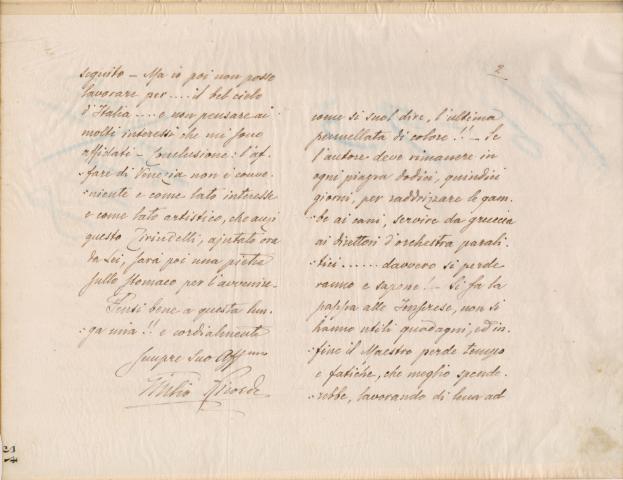 seguito – Ma io poi non posso
lavorare per .... il bel cielo
d'Italia .... e non pensare ai
molti interessi che mi sono
affidati – Conclusione: l'af-
-fare di Venezia non è conve-
-niente e come lato interesse
e come lato artistico, che anzi
questo Tirindelli, ajutato ora
da Lei, sarà poi una pietra
sullo stomaco per l'avvenire.
Pensi bene a questa lun-
-ga mia!! e cordialmente
sempre suo Aff.mo
Giulio Ricordi
2
come si suol dire, l'ultima
pennellata di colore!! – Se
l'autore deve rimanere in
ogni piazza dodici, quindici
giorni, per raddrizzare le gam-
-be ai cani, servire da gruccia
ai direttori d'orchestra parali-
-tici ...... davvero si perde
ranno e sapone! – Si fa la
pappa alle Imprese, non si
hanno utili guadagni, ed in-
-fine il Maestro perde tempo
e fatiche, che meglio spende-
-rebbe, lavorando di lena ad